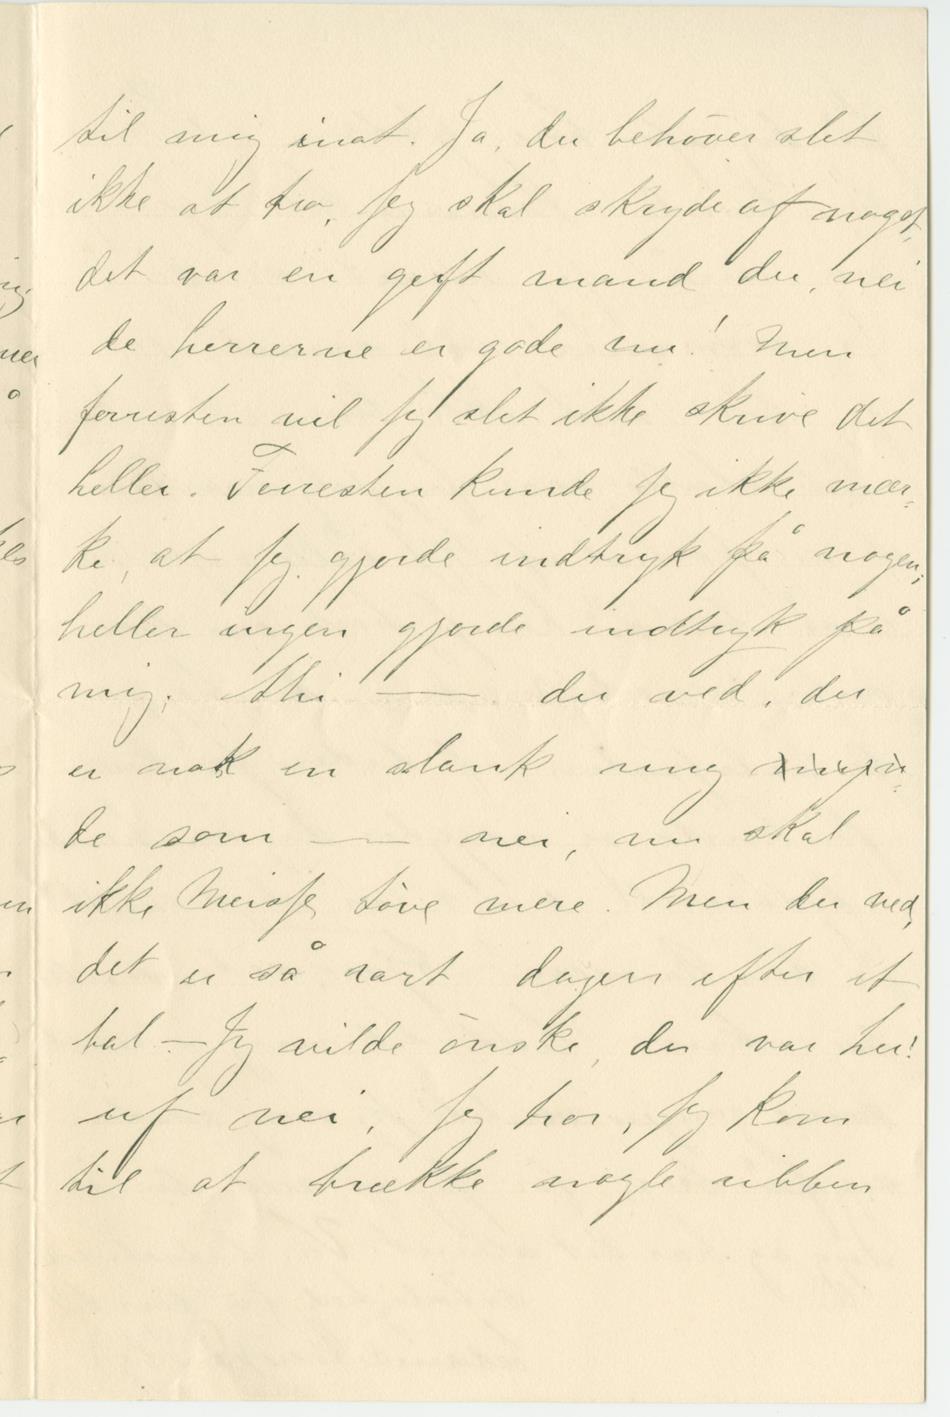 til mig inat. Ja, du behöver slet
ikke at tro, Jeg skal skryde af noget,
det var en geft mand du, nei
de herrerne er gode nu! Men
forresten vil Jeg slet ikke skrive det
heller. Forresten kunde Jeg ikke mær-
ke, at Jeg gjorde indtryk på nogen;
heller ingen gjorde indtryk på
mig; thi — du ved, der
er nok en slank ung
de som — nei, nu skal
ikke töve mere. Men du ved,
det er så rart dagen efter et
bal — Jeg vilde önske, du var her!
uf nei, Jeg tror, Jeg kom
til at brække nogle ribben